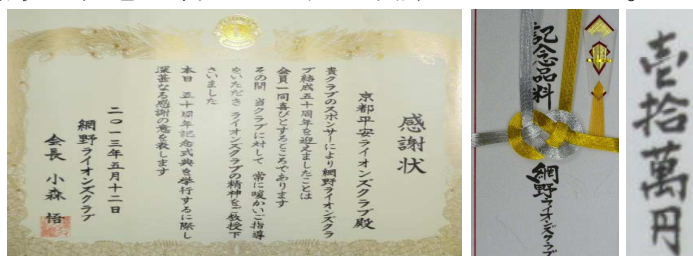 感謝状
京都平安ライオンズクラブ殿
貴クラブのスポンサーにより網野ライオンズクラ
ブ結成五十周年を迎えましたことは
会員一同喜びとするところであります
その間 当クラブに対して 常に暖かいご指導
をいただき ライオンズクラブの精神をご教授下
さいました
本日 五十周年記念式典を挙行するに際し
深甚なる感謝の意を表します
二〇一三年五月十二日
網野ライオンズクラブ
会長 小森 悟
記念品料
網野ライオンズクラブ
壱拾萬円